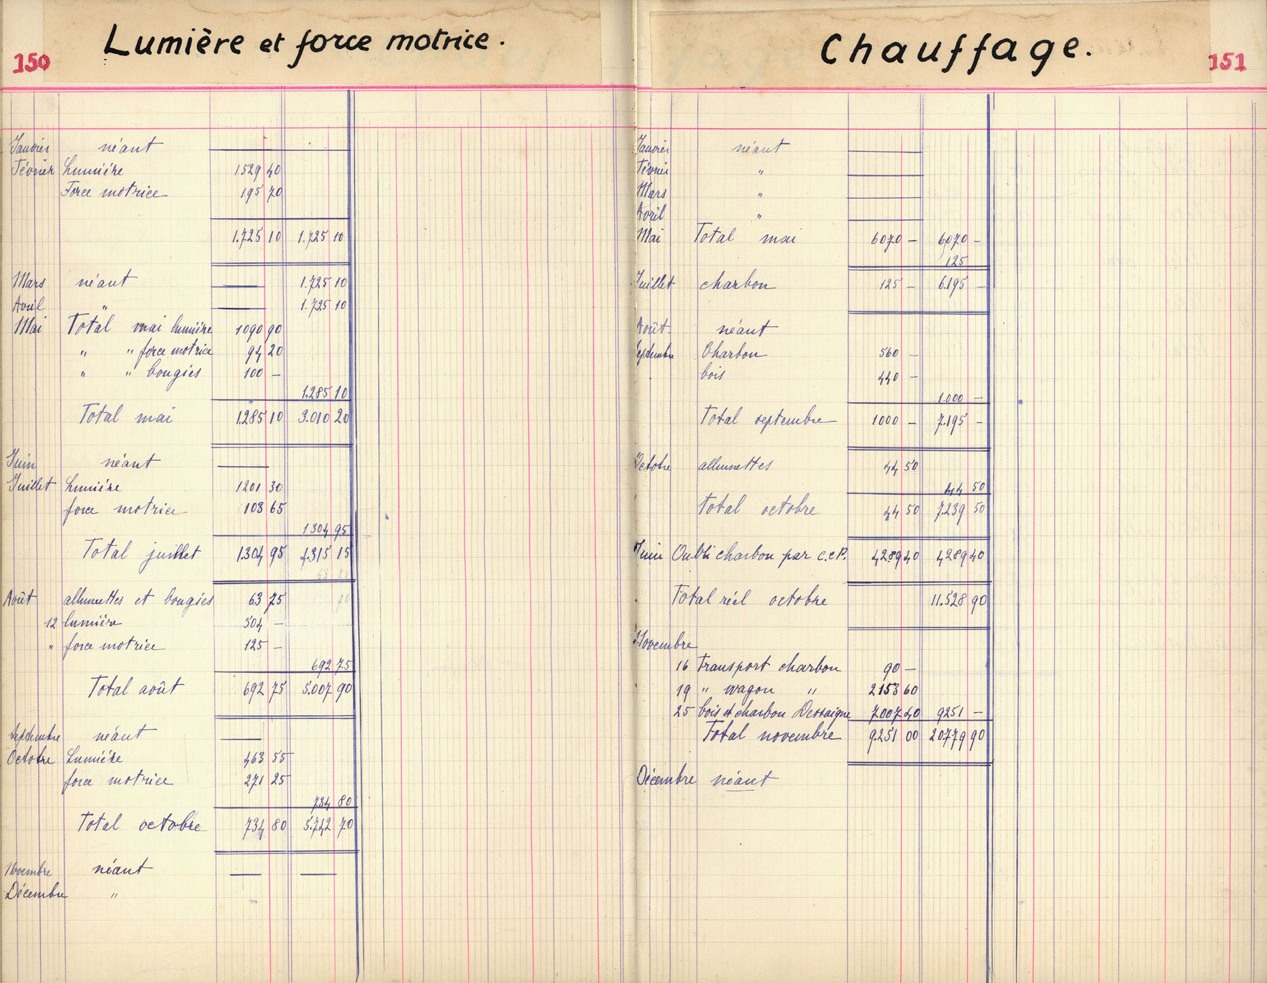 150
Lumière et force motrice.
Janvier néant
Février Lumière 1529 40
Force motrice 195 70
1.725 10 1.725 10
Mars néant 1.725 10
Avril " 1.725 10
Mai Total mai lumière 1090 90
" " force motrice 94 20
" " bougies 100 -
1.285 10
Total mai 1.285 10 3.010 20
Juin néant
Juillet Lumière 1201 30
force motrice 103 65
1304 95
Total juillet 1.304 95 4.315 15
Août allumettes et bougies 63 75
12 lumière 504 -
" force motrice 125 -
692 75
Total août 692 75 5.007 90
Septembre néant
Octobre Lumière 463 55
force motrice 271 25
734 80
Total octobre 734 80 5.742 70
Novembre néant
Décembre "
Chauffage.
151
Janvier néant
Février "
Mars "
Avril "
Mai Total mai 6070 - 6070 -
125
Juillet charbon 125 - 6.195 -
Août néant
Septembre Charbon 560 -
bois 440 -
1.000 -
Total septembre 1000 - 7.195 -
Octobre allumettes 44 50
44 50
Total octobre 44 50 7.239 50
Juin Oubli charbon par c.c.P. 4289 40 4289 40
Total réel octobre 11.528 90
Novembre
16 Transport charbon 90 -
19 " wagon " 2153 60
25 bois et charbon Dessaigne 7007 40 9251 -
Total novembre 9251 00 20779 90
Décembre néant